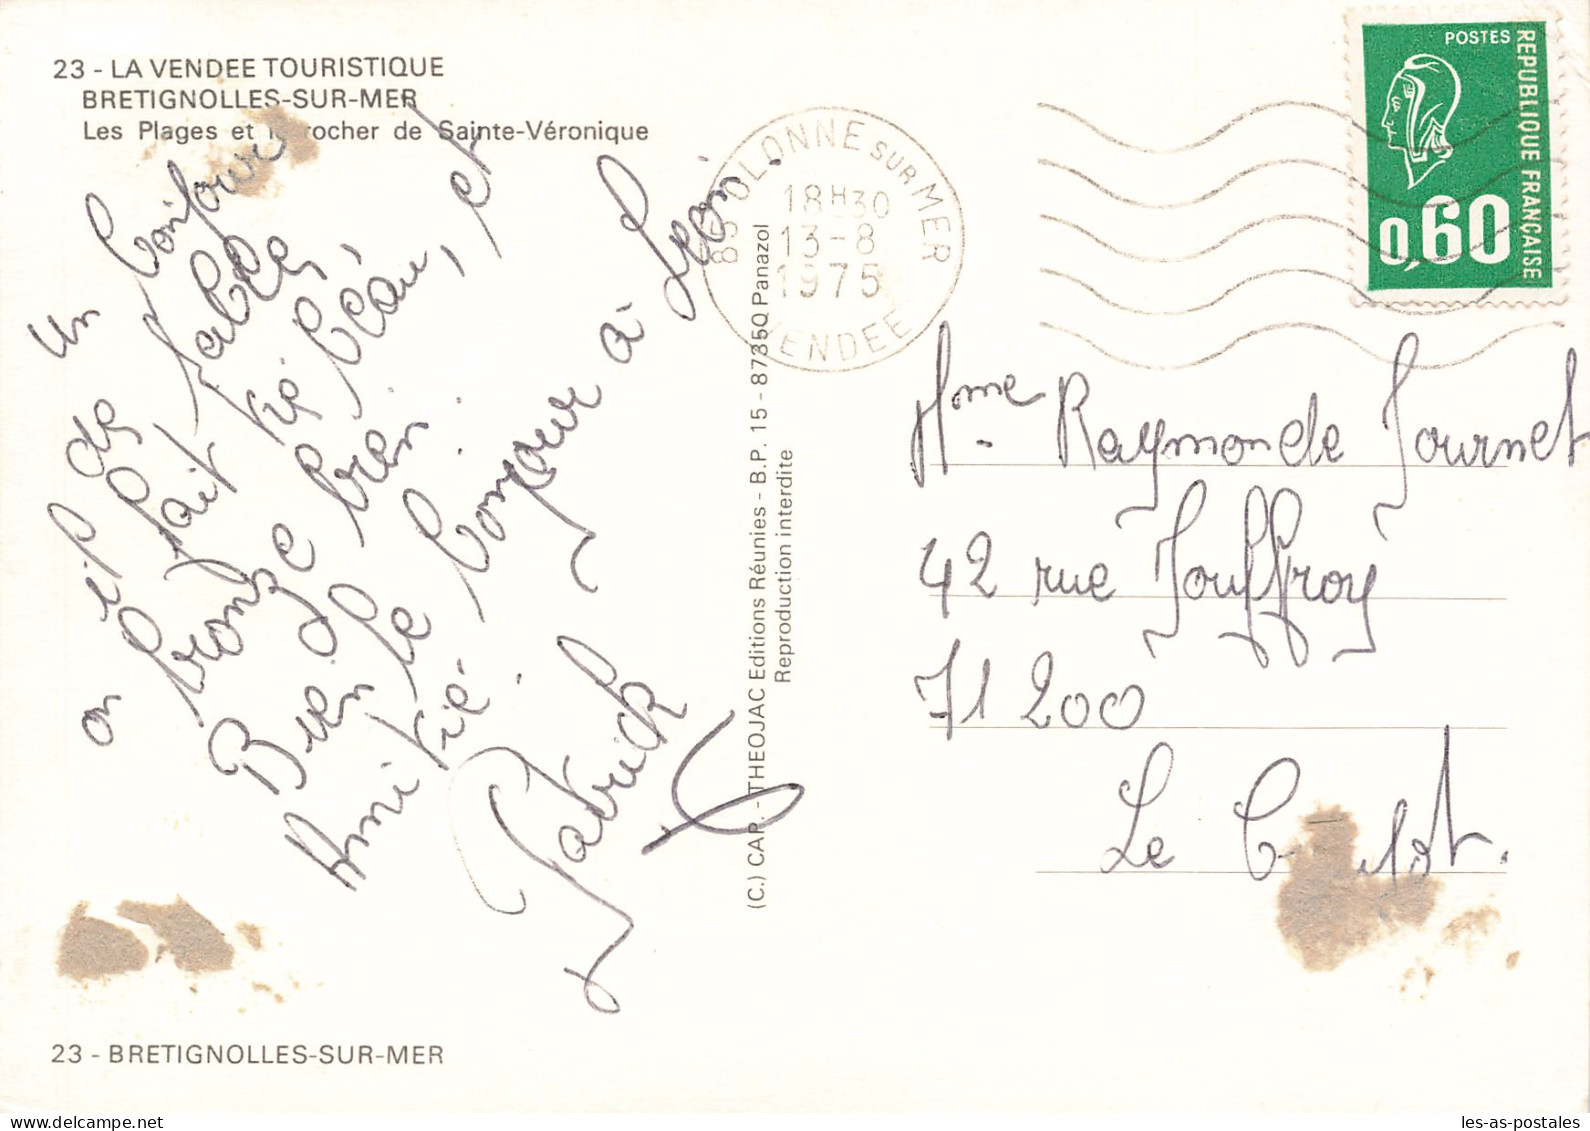 23 - LA VENDEE TOURISTIQUE
BRETIGNOLLES-SUR-MER
Les Plages et le rocher de Sainte-Véronique
Un bonjour
des Sables,
il fait très beau, et
on bronze bien.
Bien le bonjour à Léon.
Amitié.
Patrick
23 - BRETIGNOLLES-SUR-MER
(C.) CAP. - THEOJAC Editions Réunies - B.P. 15 - 87350 Panazol
Reproduction interdite
85 OLONNE SUR MER
18H30
13-8
1975
VENDEE
POSTES
REPUBLIQUE FRANÇAISE
0,60
Mme Raymonde Journet
42 rue Jouffroy
71 200
Le Creusot.
les-as-postales
www.delcampe.net